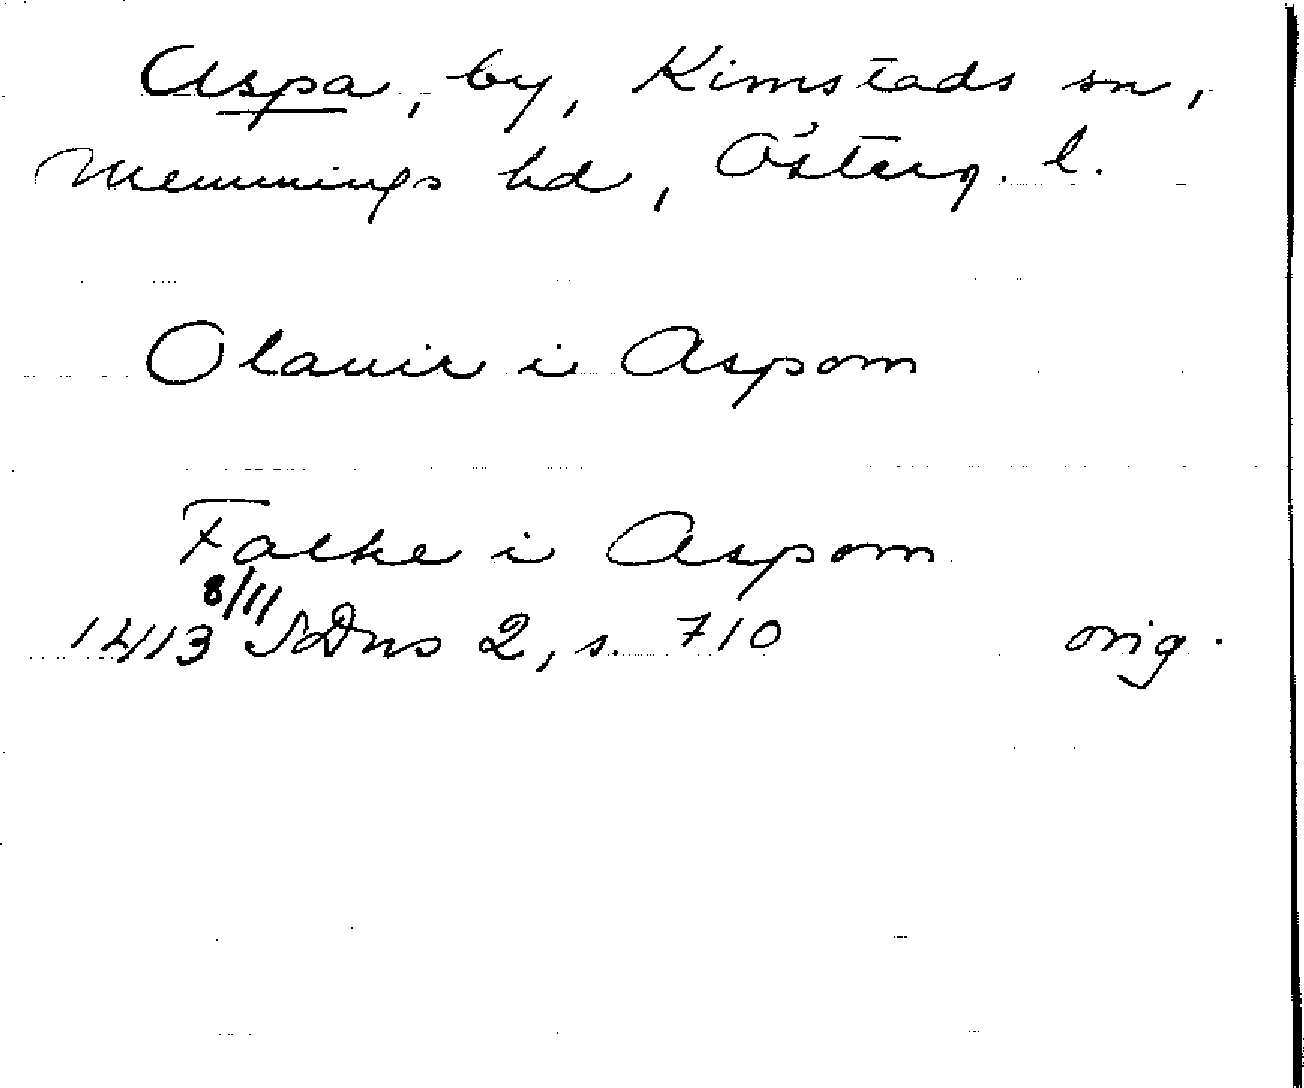 Aspa, by, Kimstads sn,
Memmings hd, Österg. l.
Olauir i Aspom
Falke i Aspom
1413 8/11 SDns 2, s. 710 orig.